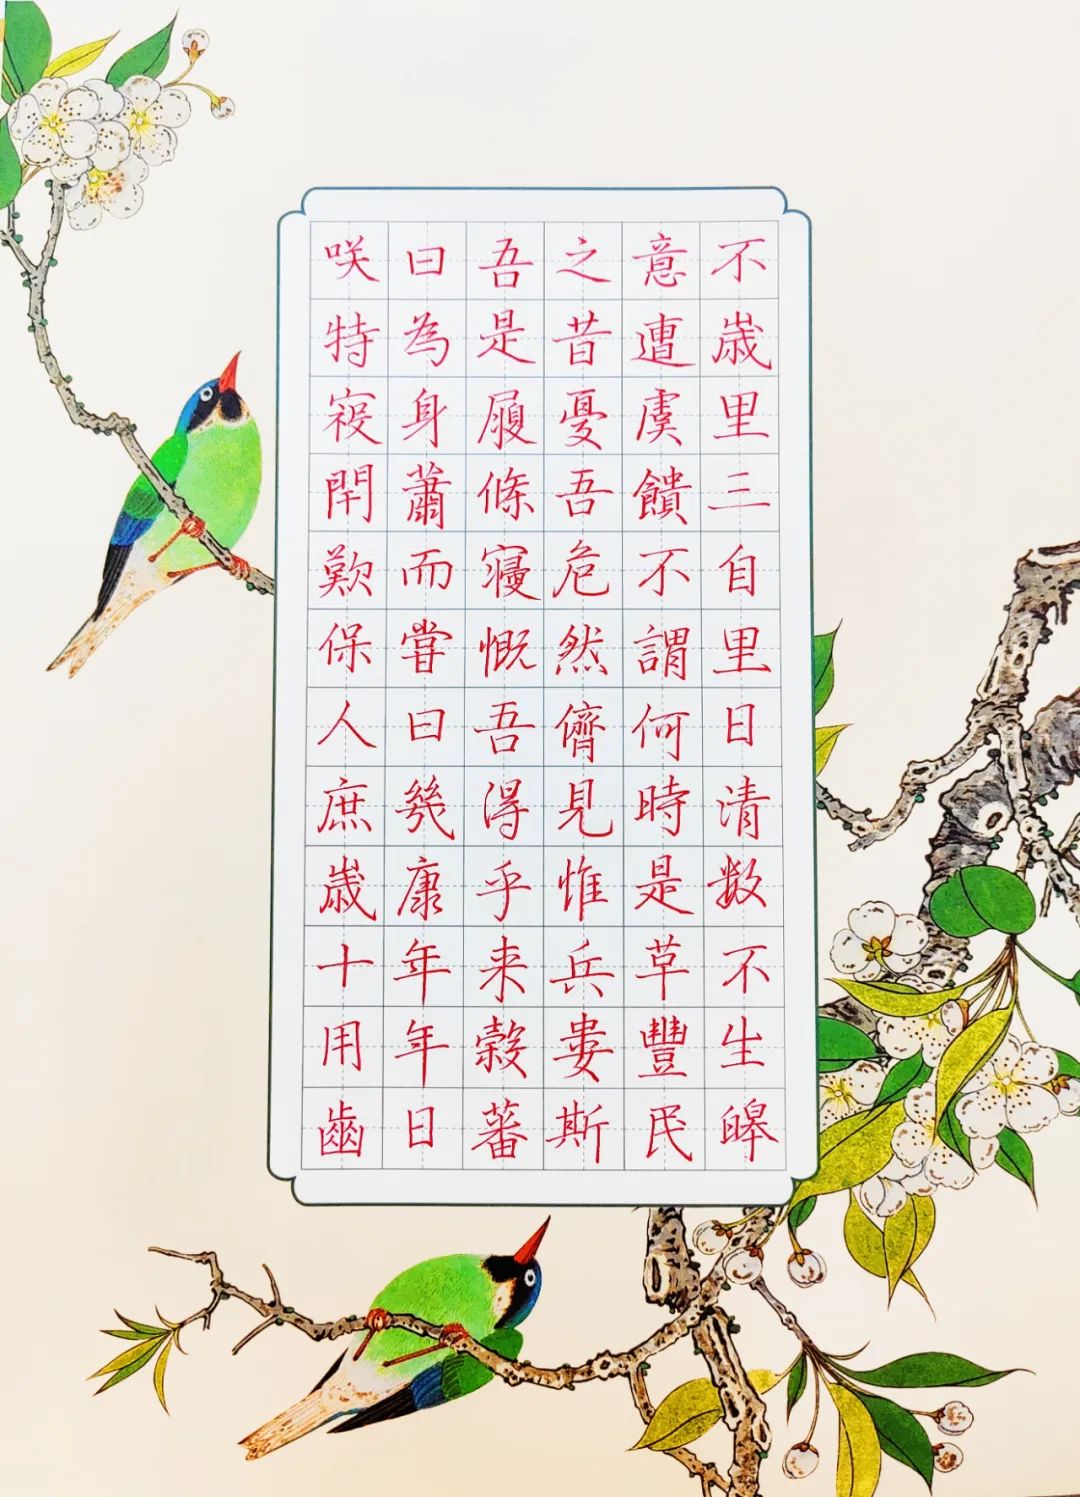 不歲里三自里日清数不生皞
意遭虞饋不謂何時是草豐民
之昔憂吾危然儕見惟兵婁斯
吾是履條寢慨吾得乎来穀蕃
曰為身蕭而嘗曰幾康年年日
咲特寑閈歎保人庶歲十用齒